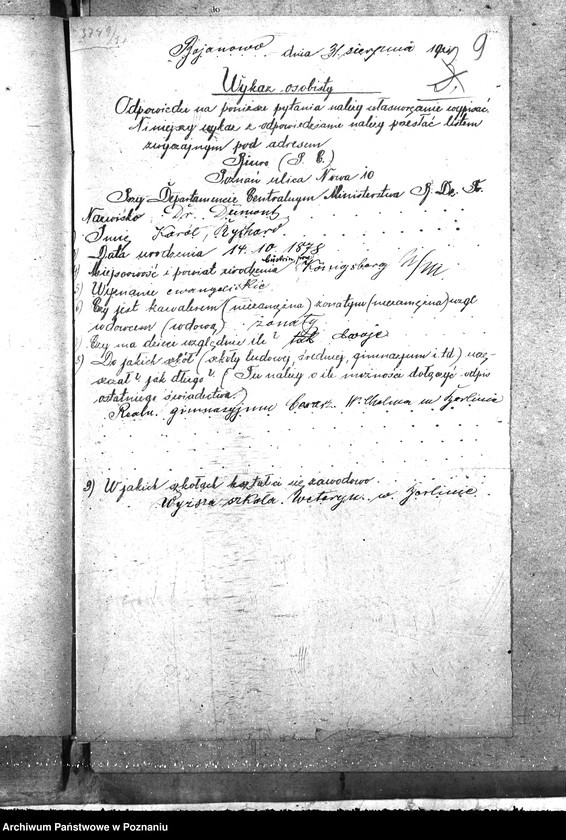 Bojanowo dnia 31. sierpnia
9
Wykaz osobisty
Odpowiedzi na poniższe pytania należy własnoręcznie wypisać.
Niniejszy wykaz z odpowiedziami należy przesłać listem
zwyczajnym pod adresem
Biuro
Poznań ulica Nowa 10
Przy Departamencie Centralnym Ministerstwa B. Dz. Pr.
Nazwisko Dr. Dumont
Imię Karól, Ryszard
Data urodzenia 14. 10. 1878
Miejscowość i powiat urodzenia Königsberg N/M
Wyznanie ewangelickie
Czy jest kawalerem (niezamężna) żonatym (zamężna) wzgl
wdowcem (wdową) żonaty
Czy ma dzieci względnie ile? tak dwoje
8) Do jakich szkół (szkoły ludowej, średniej, gimnazjum i td) uczę-
szczał? jak długo? (Tu należy o ile możności dołączyć odpis
ostatniego świadectwa.)
Realn. gimnazyjum Cesar. Wilhelma w Berlinie
9) W jakich szkołach kształcił się zawodowo
Wyższa szkoła Weteryn. w Berlinie
Archiwum Państwowe w Poznaniu